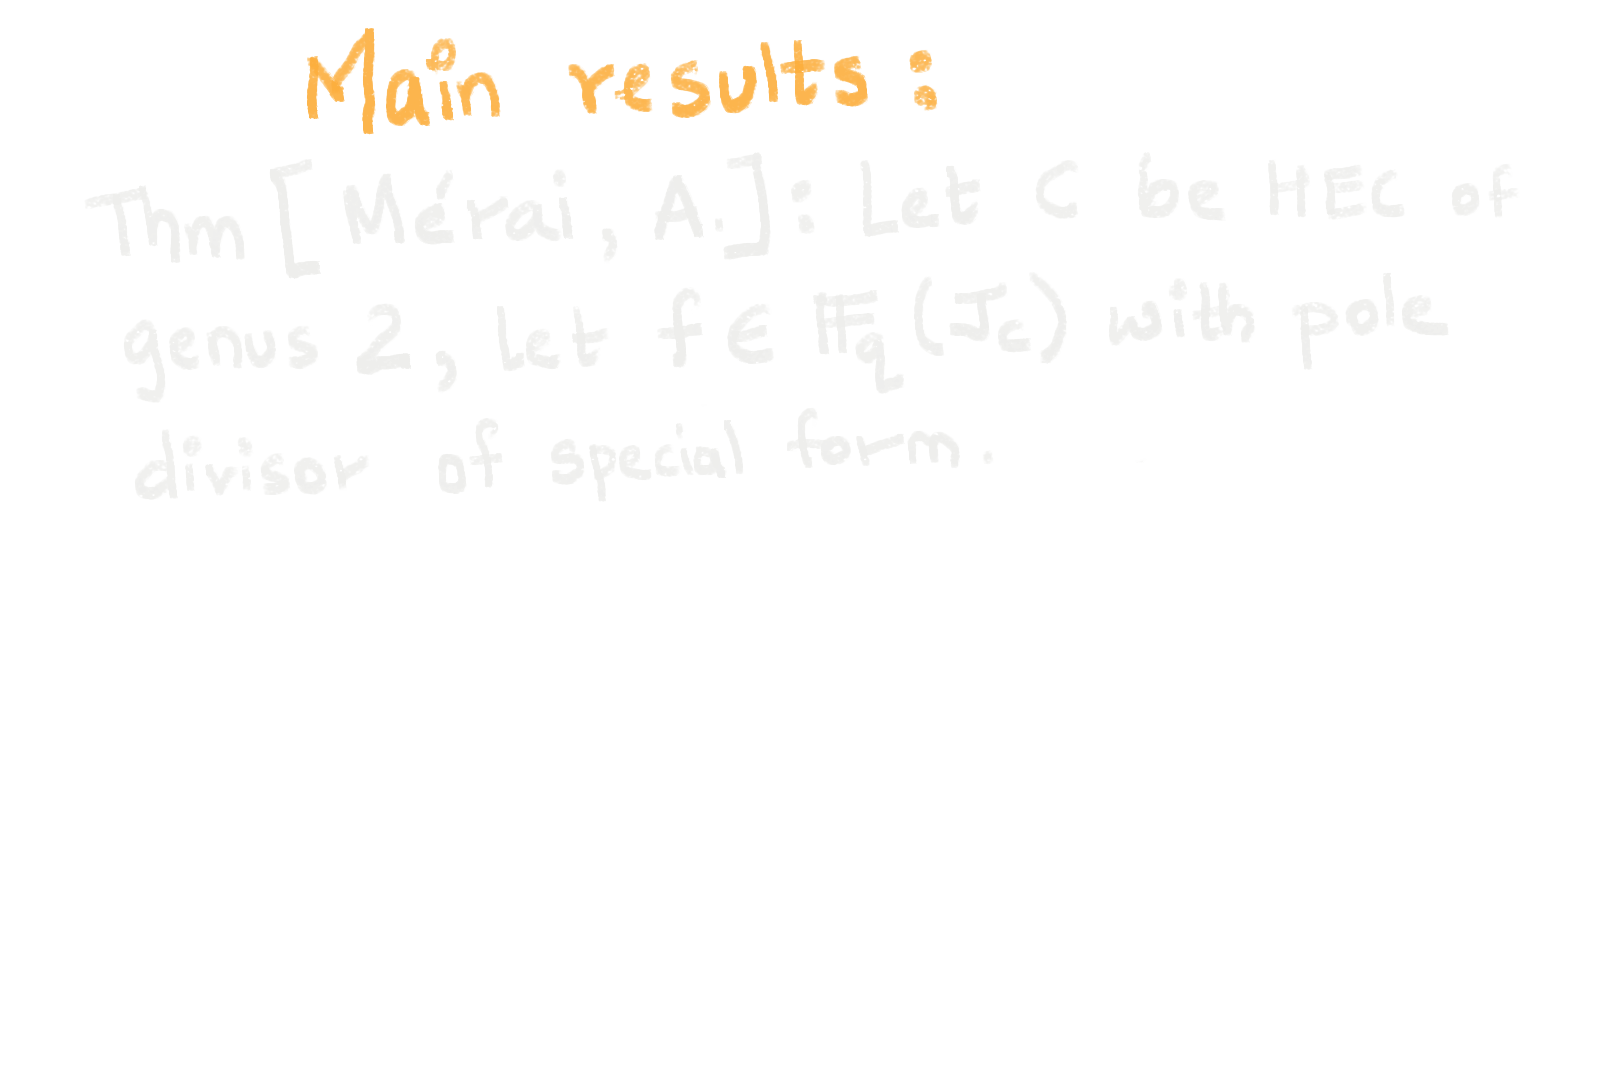 Main results :
Thm [Mérai, A.]: Let C be HEC of
genus 2, let f ∈ 𝔽q (Jc) with pole
divisor of special form.